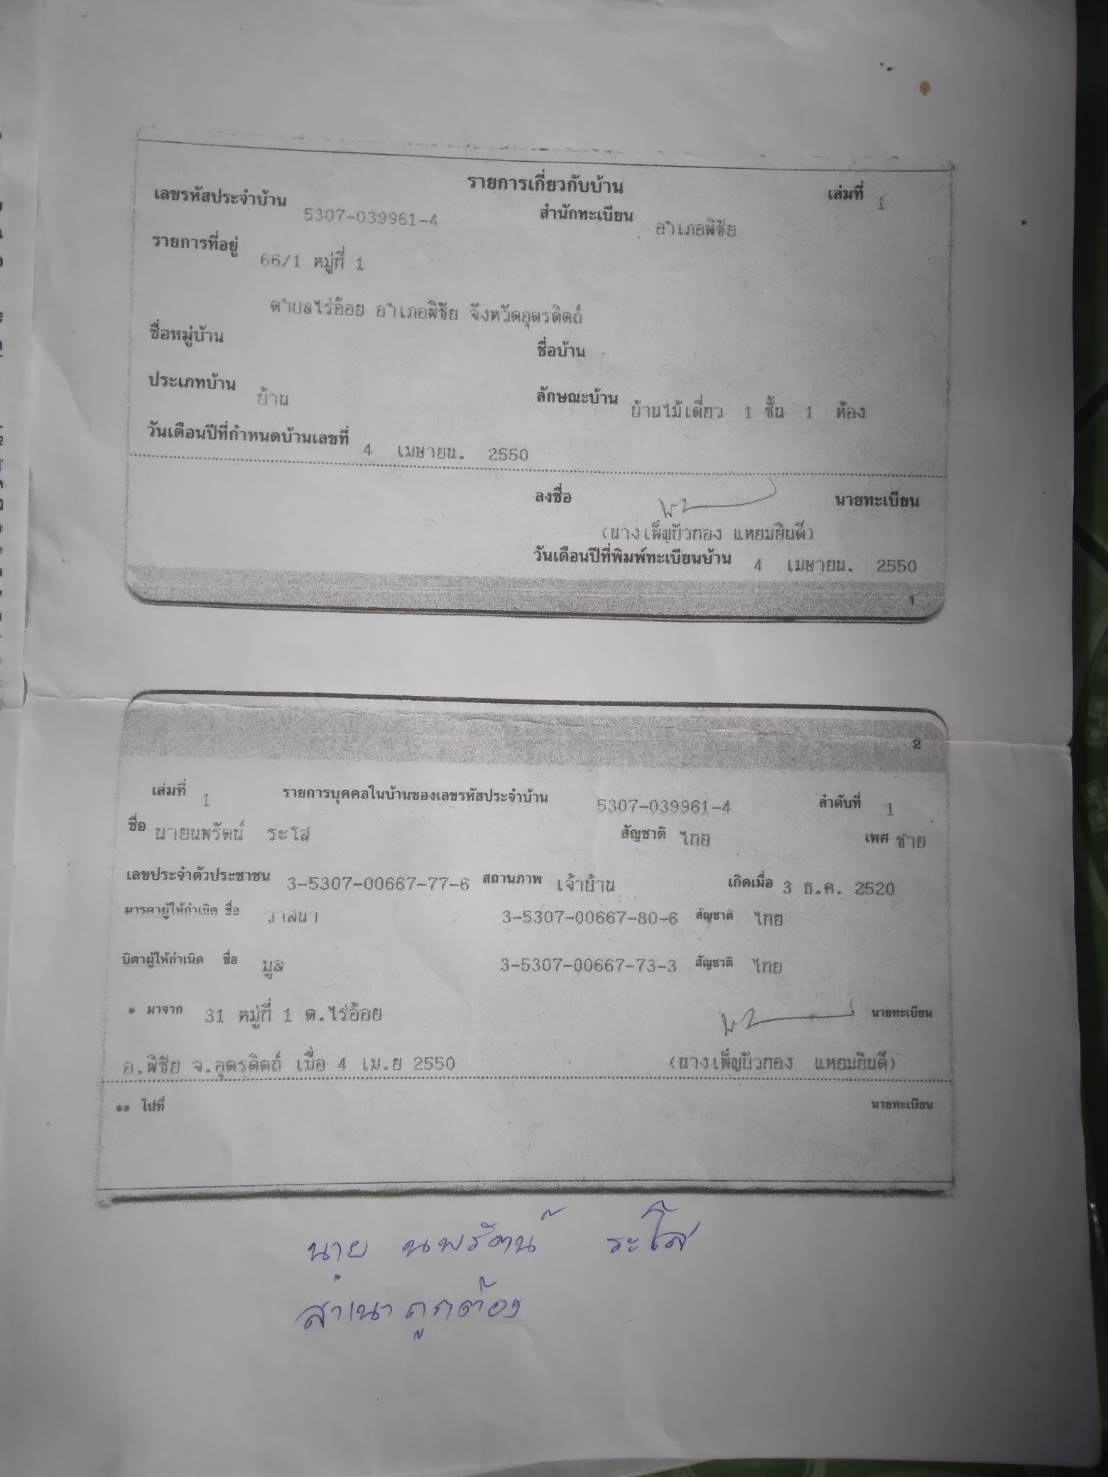 รายการเกี่ยวกับบ้าน เล่มที่ 1
เลขรหัสประจำบ้าน 5307-039961-4 สำนักทะเบียน อำเภอพิชัย
รายการที่อยู่ 66/1 หมู่ที่ 1
ตำบลไร่อ้อย อำเภอพิชัย จังหวัดอุตรดิตถ์
ชื่อหมู่บ้าน ชื่อบ้าน
ประเภทบ้าน บ้าน ลักษณะบ้าน บ้านไม้เดี่ยว 1 ชั้น 1 ห้อง
วันเดือนปีที่กำหนดบ้านเลขที่ 4 เมษายน. 2550
ลงชื่อ นายทะเบียน
(นางเพ็ญบัวทอง แหยมยินดี)
วันเดือนปีที่พิมพ์ทะเบียนบ้าน 4 เมษายน. 2550
1
2
เล่มที่ 1 รายการบุคคลในบ้านของเลขรหัสประจำบ้าน 5307-039961-4 ลำดับที่ 1
ชื่อ นายนพรัตน์ ระโส สัญชาติ ไทย เพศ ชาย
เลขประจำตัวประชาชน 3-5307-00667-77-6 สถานภาพ เจ้าบ้าน เกิดเมื่อ 3 ธ.ค. 2520
มารดาผู้ให้กำเนิด ชื่อ วาสนา 3-5307-00667-80-6 สัญชาติ ไทย
บิดาผู้ให้กำเนิด ชื่อ มูล 3-5307-00667-73-3 สัญชาติ ไทย
* มาจาก 31 หมู่ที่ 1 ต.ไร่อ้อย นายทะเบียน
อ.พิชัย จ.อุตรดิตถ์ เมื่อ 4 เม.ย 2550 (นางเพ็ญบัวทอง แหยมยินดี)
** ไปที่ นายทะเบียน
นาย นพรัตน์ ระโส
สำเนาถูกต้อง